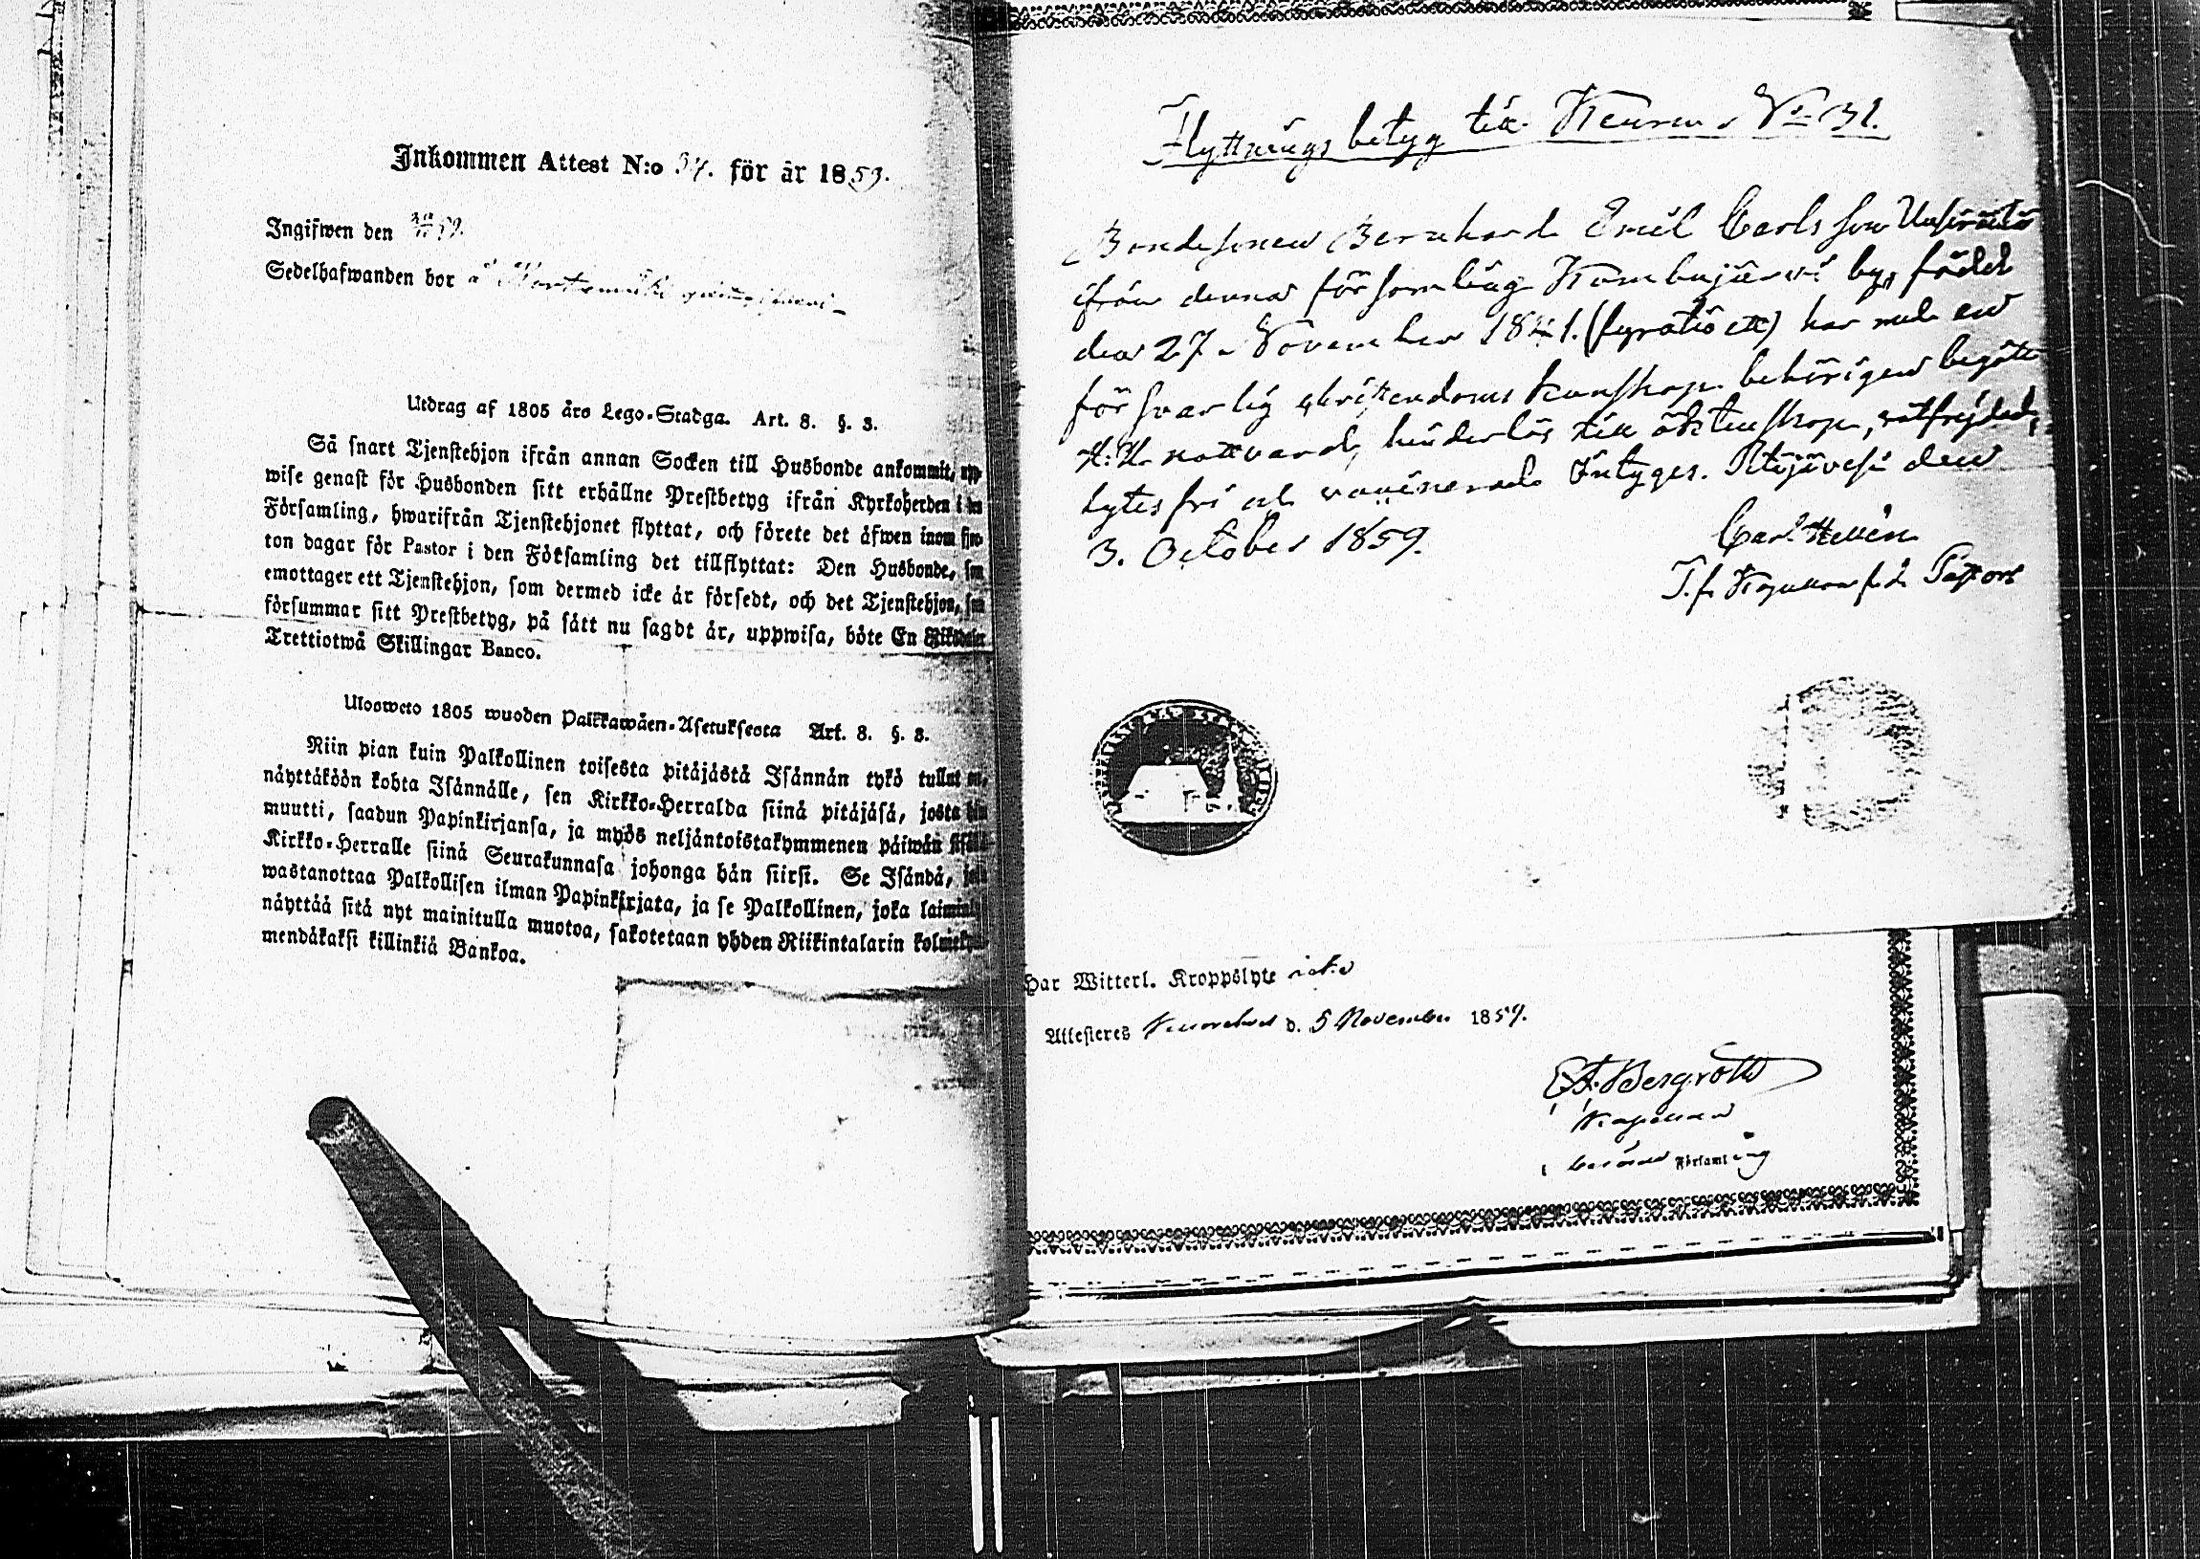 Inkommen Attest N:o 37. för år 1859.
Ingifwen den
Sedelhafwanden bor å
Utdrag af 1805 års Lego-Stadga. Art. 8. §. 3.
Så snart Tjenstehjon ifrån annan Socken till Husbonde ankommit, upp-
wise genast för Husbonden sitt erhållne Prestbetyg ifrån Kyrkoherden i den
Församling, hwarifrån Tjenstehjonet flyttat, och förete det äfwen inom fjor-
ton dagar för Pastor i den Församling det tillflyttat: Den Husbonde, som
emottager ett Tjenstehjon, som dermed icke är försedt, och det Tjenstehjon, som
försummar sitt Prestbetyg, på sätt nu sagdt är, uppwisa, böte En Riksdaler
Trettiotwå Skillingar Banco.
Ulosweto 1805 wuoden Palkkawäen-Asetuksesta Art. 8. §. 3.
Niin pian kuin Palkollinen toisesta pitäjästä Isännän tykö tullut on,
näyttäköön kohta Isännälle, sen Kirkko-Herralda siinä pitäjäsä, josta hän
muutti, saadun Papinkirjansa, ja myös neljäntoistakymmenen päiwän sisällä
Kirkko-Herralle siinä Seurakunnasa johonga hän siirsi. Se Isändä, joka
wastanottaa Palkollisen ilman Papinkirjata, ja se Palkollinen, joka laiminlyö
näyttää sitä nyt mainitulla muotoa, sakotetaan yhden Riikintalarin kolmekym-
mendäkaksi killinkiä Bankoa.
Flyttnings betyg till Keuru. No 31.
Bondesonen Bernhard Emil Carlsson
ifrån denna församling by, född
den 27 November 1841. (fyratioett) har med en
försvarlig christendoms kunskap behörigen begått
H: H. nattvard, hinderlös till äktenskap, välfrejdad,
lytesfri och vaccinerad Intyges. Pihtjävesi den
3. October 1859.
Carl Hellén
T.f. Kapellan och Pastor
Har Witterl. Kroppslyte icke
Attesteres d. 5 November 1859.
Bergroth
Kapellan
Församling